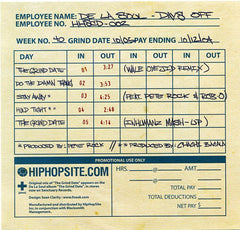 EMPLOYEE NAME: DE LA SOUL - DAYS OFF
EMPLOYEE NO. HHSCD-002
WEEK NO. 42 GRIND DATE 10/05 PAY ENDING 10/12/04
DAY IN OUT IN OUT
THE GRIND DATE 01 3:27 (WALE OYEJIDE REMIX)
DO THE DAMN THING 02 3:53
STAY AWAY * 03 4:25 (FEAT. PETE ROCK & ROB-O)
HOLD TIGHT ** 04 2:48
THE GRIND DATE 05 4:14 (INHUMANZ MASH-UP)
* PRODUCED BY: PETE ROCK // ** PRODUCED BY:
PROMOTIONAL USE ONLY
HIPHOPSITE.COM
Original site of "The Grind Date" appears on the
De La Soul album "The Grind Date", in stores
now on Sanctuary Records.
Design: Sean Clarity: www.freek.com
Manufactured and distributed by HipHopSite
Inc. in conjunction with
Management.
HRS. @ AM
TOTAL PAY
TOTAL DEDUCTIONS
NET PAY $